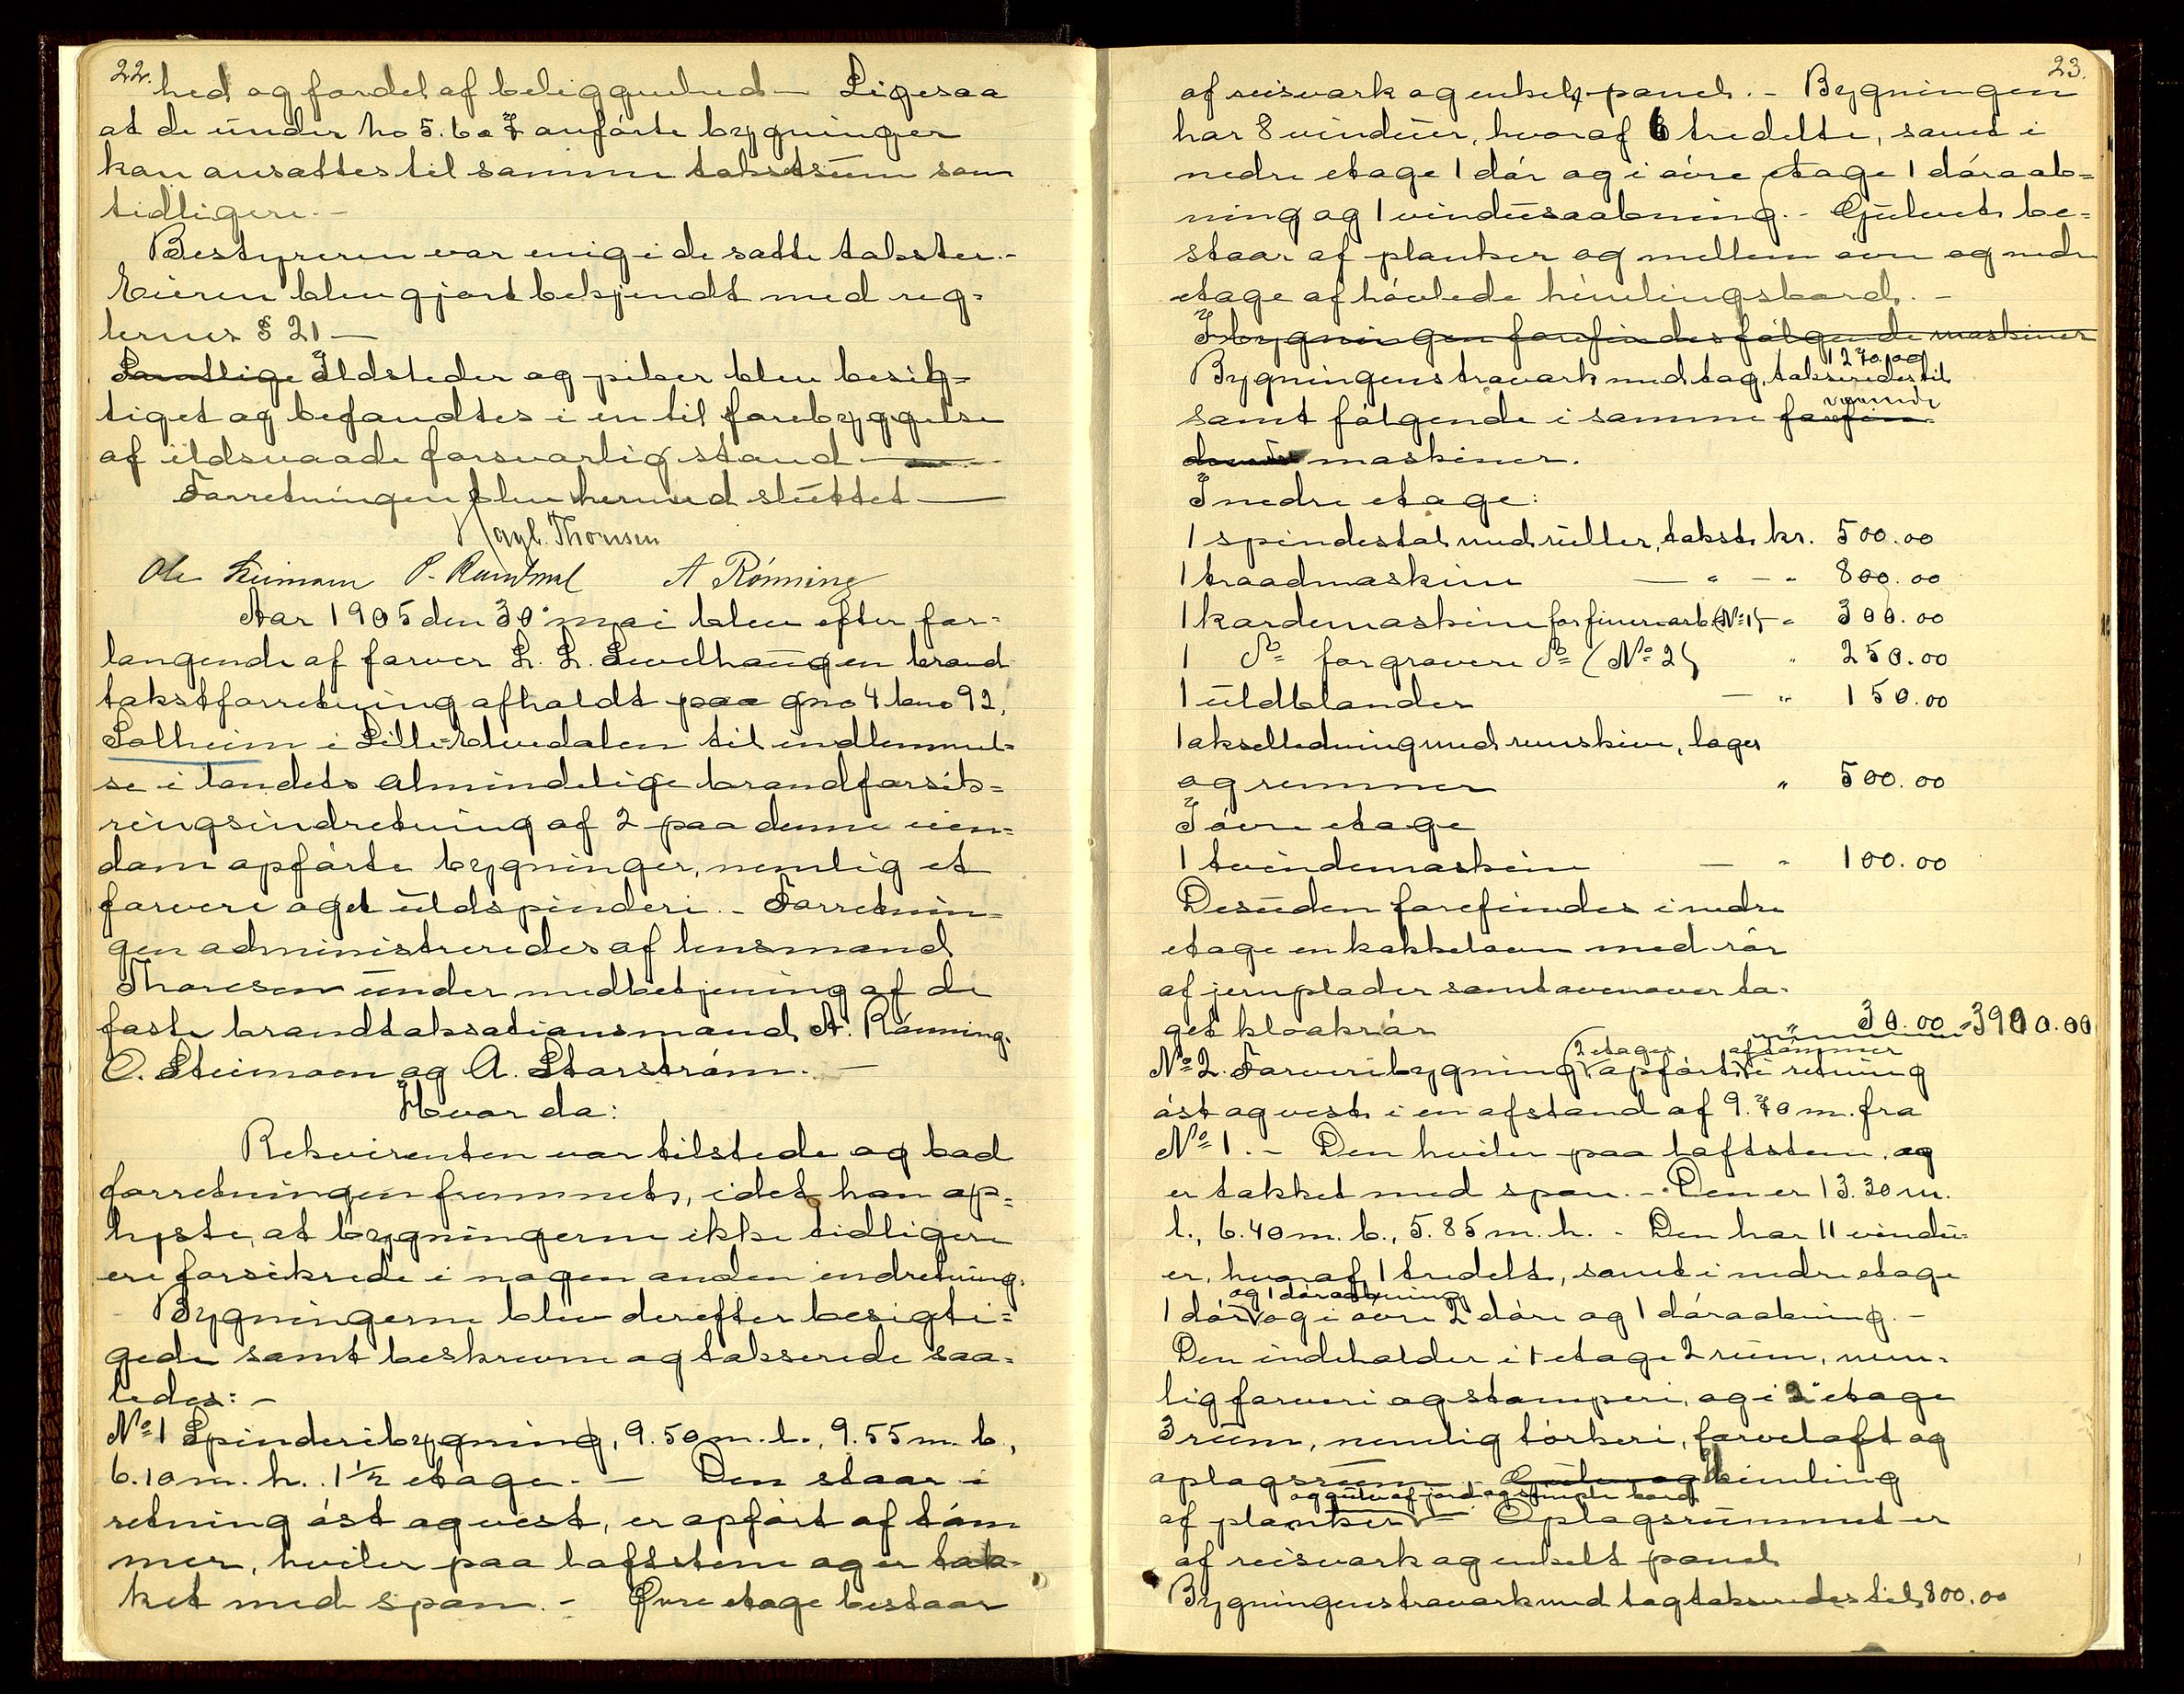 22.
hed og fordel af beliggenhed — Ligesaa
at de under no 5. 6 o 7 anførte bygninger
kan ansættes til samme takstsum som
tidligere. –
Bestyreren var enig i de satte takster. –
Eieren blev gjort bekjendt med reg-
lernes § 21 —
Samtlige Ildsteder og piber blev besig-
tiget og befandtes i en til forebyggelse
af ildsvaade forsvarlig stand —
Forretningen blev hermed sluttet —
Hagb. Thoresen
Ole Steimoen P. A Rønning
Aar 1905 den 30' mai blev efter for-
langende af farver L. L. Sevelhaugen brand
takstforretning afholdt paa gno 4 bno 92,
Solheim i Lille-Elvedalen til indlemmel-
se i landets almindelige brandforsik-
ringsindretning af 2 paa denne eien-
dom opførte bygninger, nemlig et
farveri og et uldspinderi. – Forretnin-
gen administreredes af lensmand
Thoresen under medbetjening af de
faste brandtaksationsmænd A. Rønning.
O. Steimoen og A. Storstrøm. —
Hvor da:
Rekvirenten var tilstede og bad
forretningen fremmet, idet han op-
lyste, at bygningerne ikke tidligere
ere forsikrede i nogen anden indretning.
Bygningerne blev derefter besigti-
gede samt beskrevne og takserede saa-
ledes: –
No 1 Spinderibygning, 9.50 m. l., 9.55 m. b.,
6.10 m. h. 1 1/2 etage. – Den staar i
retning øst og vest, er opført af tøm
mer, hviler paa laftstene og er tæk-
ket med spaan. – Øvre etage bestaar
23.
af reisværk og enkelt panel. – Bygningen
har 8 vinduer, hvoraf 6 tredelte, samt i
nedre etage 1 dør og i øvre etage 1 døraab-
ning og 1 vinduesaabning. – Gulvet be-
staar af planker og mellem øvre og nedre
etage af høvlede himlingsbord. –
I bygningen forefindes følgende maskiner
1270.00
Bygningens træværk med tag, takseredes til
værende
samt følgende i samme forefin-
maskiner.
I nedre etage:
1 spindestol med ruller, takst kr. 500.00
1 traadmaskine — " — " 800.00
1 kardemaskine for finere arb. (No 1) – " 300.00
1 Do for grovere Do (No 2) " 250.00
1 uldblander — " 150.00
1 akselledning med remskive, lager
og remmer " 500.00
I øvre etage
1 tvindemaskine — " 100.00
Desuden forefindes i nedre
etage en kakkelovn med rør
af jernplader samt ovenover ta-
get kloakrør " 30.00 = 3900.00
2 etager af tømmer
No 2. Farveribygning opført i retning
øst og vest i en afstand af 9.70 m. fra
No 1. – Den hviler paa laftstene, og
er tækket med spaan. – Den er 13.30 m.
l., 6.40 m. b., 5.85 m. h. – Den har 11 vindu-
er, hvoraf 1 tredelt, samt i nedre etage
og 1 døraabning
1 dør og i øvre 2 døre og 1 døraabning. –
Den indeholder i 1 etage 2 rum, nem-
lig farveri og stamperi, og i 2' etage
3 rum, nemlig tørkeri, farveloft og
oplagsrum. – Gulv og Himling
og gulv af jord og simple bord
af planker – Oplagsrummet er
af reisværk og enkelt panel.
Bygningens træværk med tag takseredes til 800.00